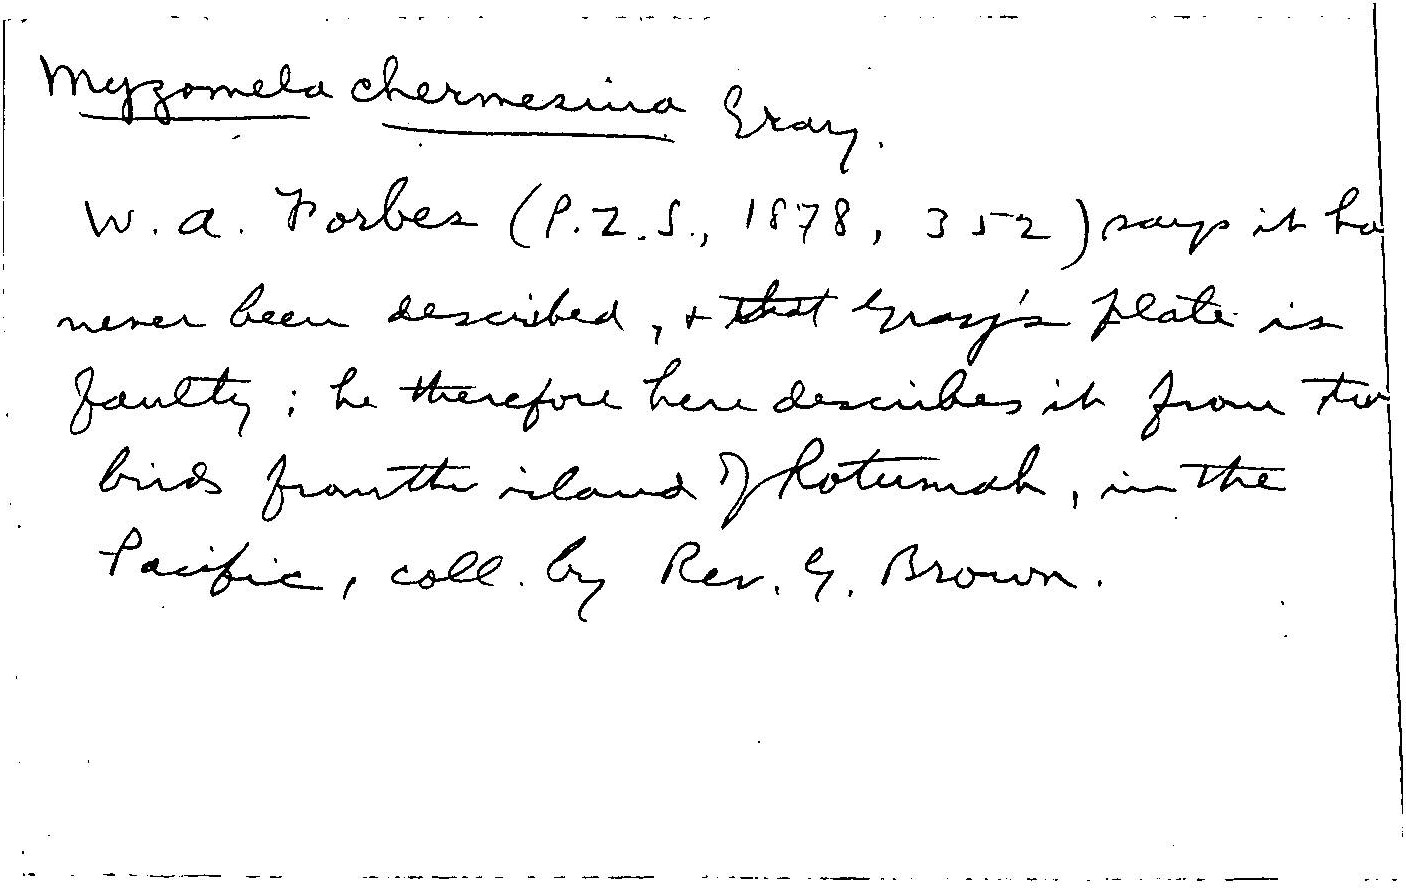 Myzomela chermesina Gray.
W. A. Forbes (P.Z.S., 1878, 352) says it ha
never been described, + that Gray's plate is
faulty; he therefore here describes it from tw
birds from the island of Rotumah, in the
Pacific, coll. by Rev. G. Brown.